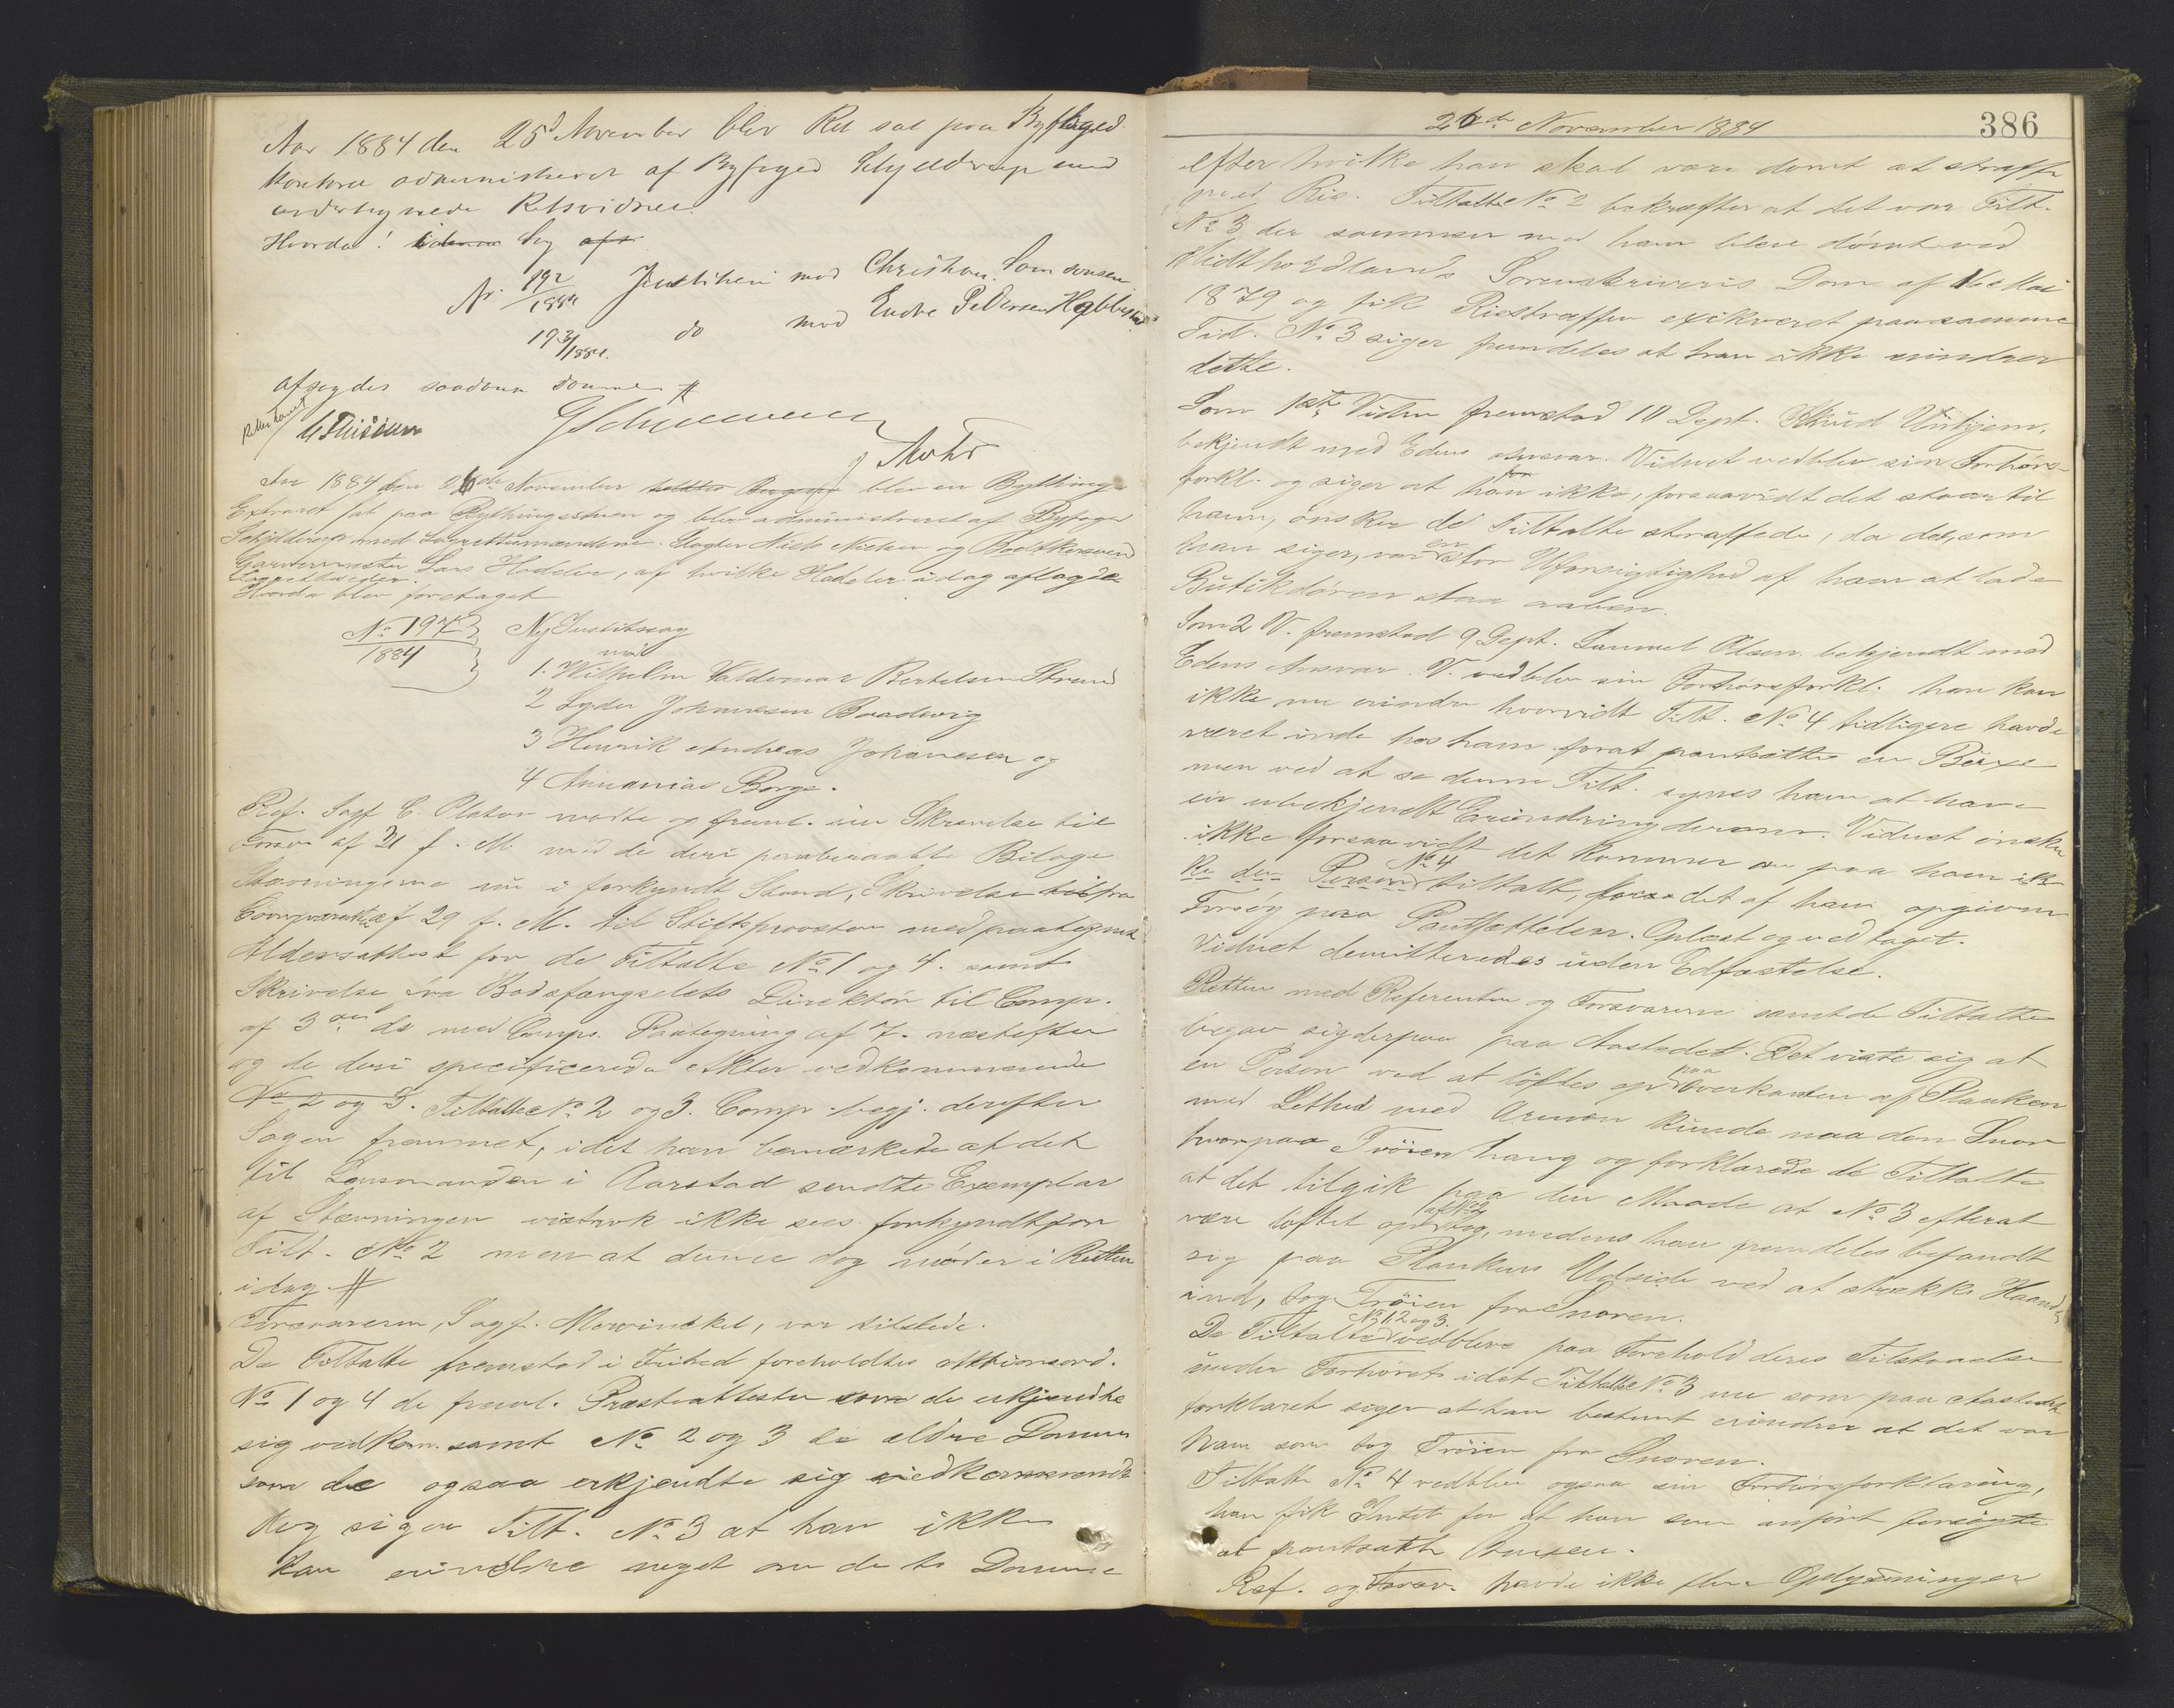 Aar 1884 den 25d November blev Ret sat paa Byfoged
Kontoret administreret af Byfoged Schjelderup med
undertegnede Retsvidner.
Hvorda! i Sag
Nr. 192/1884 Justitien mod Christian Samsonsen
193/1884. do mod Endre Pedersen
afsagdes saadanne Domme #
Mohr
Aar 1884 den 26de November blev en Bything
Extraret sat paa Bythingsstuen og blev administreret af Byfoged
Schjelderup med Lagrettesmændene Slagter Niels Nielsen og
Garvermester Lars Hodeler, af hvilke Hodeler idag aflagde
Lagretteseden.
Hvorda blev foretaget
No 197/1884 Ny Justitssag
mod
1. Wilhelm Valdemar Bertelsen Strand
2 Lyder Johannesen Baadevig
3 Henrik Andreas Johannesen og
4 Annanias Borge.
Ref. Sagf. C. Platou mødte og freml. sin Skrivelse til
Forsv. af 31 f. M. med de deri paaberaabte Bilage
Stævningerne nu i forkyndt Stand, Skrivelse fra
Comparenten af 29 f. M. til Stiftsprovsten med paategnet
Aldersattest for de Tiltalte No 1 og 4. samt
Skrivelse fra Bodsfængslets Direktør til Comp.
af 3die ds med Comps. Paategning af 7. næstefter
og de deri specificerede Akter vedkommende
No 2 og 3. Tiltalte No 2 og 3. Comp. begj. derefter
Sagen fremmet, idet han bemærkede at det
til Lensmanden i Aarstad sendte Exemplar
af Stævningen vistnok ikke sees forkyndt for
Tilt. No 2 men at denne dog møder i Retten
idag #
Forsvareren, Sagf. Mowinckel, var tilstede.
De Tiltalte fremstod i Frihed foreholdtes Aktionsord.
No 1 og 4 de freml. Præsteattester som de erkjendte
sig vedkom. samt No 2 og 3 de ældre Domme
som de ogsaa erkjendte sig vedkommende
dog siger Tilt. No 3 at han ikke
kan erindre noget om de to Domme
26de November 1884
386
efter hvilke han skal være dømt at straffe
med Ris. Tiltalte No 2 bekræfter at det var Tilt.
No 3 der sammen med ham blev dømt ved
Midthordlands Sorenskriveris Dom af 16 Mai
1879 og fik Risstraffen exikveret paa samme
Tid. No 3 siger fremdeles at han ikke erindrer
dette.
Som 1ste Vidne fremstod 10 Dept. Knud Unhjem,
bekjendt med Edens Ansvar. Vidnet vedblev sin Forhørs-
forkl. og siger at han ikke, forsaavidt det staar til
ham, ønsker de Tiltalte straffede, da det, som
han siger, var en stor Uforsigtighed af ham at lade
Butikdøren staa aaben.
Som 2 V. fremstod 9 Dept. Samuel Olsen bekjendt med
Edens Ansvar. V. vedblev sin Forhørsforkl. han kan
ikke nu erindre hvorvidt Tilt. No 4 tidligere havde
været inde hos ham forat pantsætte en Buxe
men ved at se denne Tilt. synes ham at have
en ubekjendt Erindring derom. Vidnet ønsker
ikke forsaavidt det kommer an paa ham
No 4 tiltalt, for det af ham opgivne
Forsøg paa Pantsættelsen. Oplæst og vedtaget.
Vidnet demitteredes uden Edfæstelse.
Retten med Referenten og Forsvareren samt de Tiltalte
begav sig derpaa paa Aastedet. Det viste sig at
en Person ved at løftes op paa Overkanten af Planken
med Lethed med Armen kunde naa den Snor
hvorpaa Trøien hang og forklarede de Tiltalte
at det tilgik paa den Maade at No 3 efterat
være løftet op af No 2 tog, medens han fremdeles befandt
sig paa Plankens Udside ved at strække Haanden
ind, tog Trøien fra Snoren.
De Tiltalte No 1, 2 og 3. vedbleve paa Forehold deres Tilstaaelse
under Forhøret idet Tiltalte No 3 nu som paa Aastedet
forklaret siger at han bestemt erindrer at det var
ham som tog Trøien fra Snoren.
Tiltalte No 4 vedblev ogsaa sin Forhørsforklaring,
han fik Intet for at han som anført forsøgte
at pantsætte Buxen.
Ref. og Forsv. havde ikke flere Oplysninger